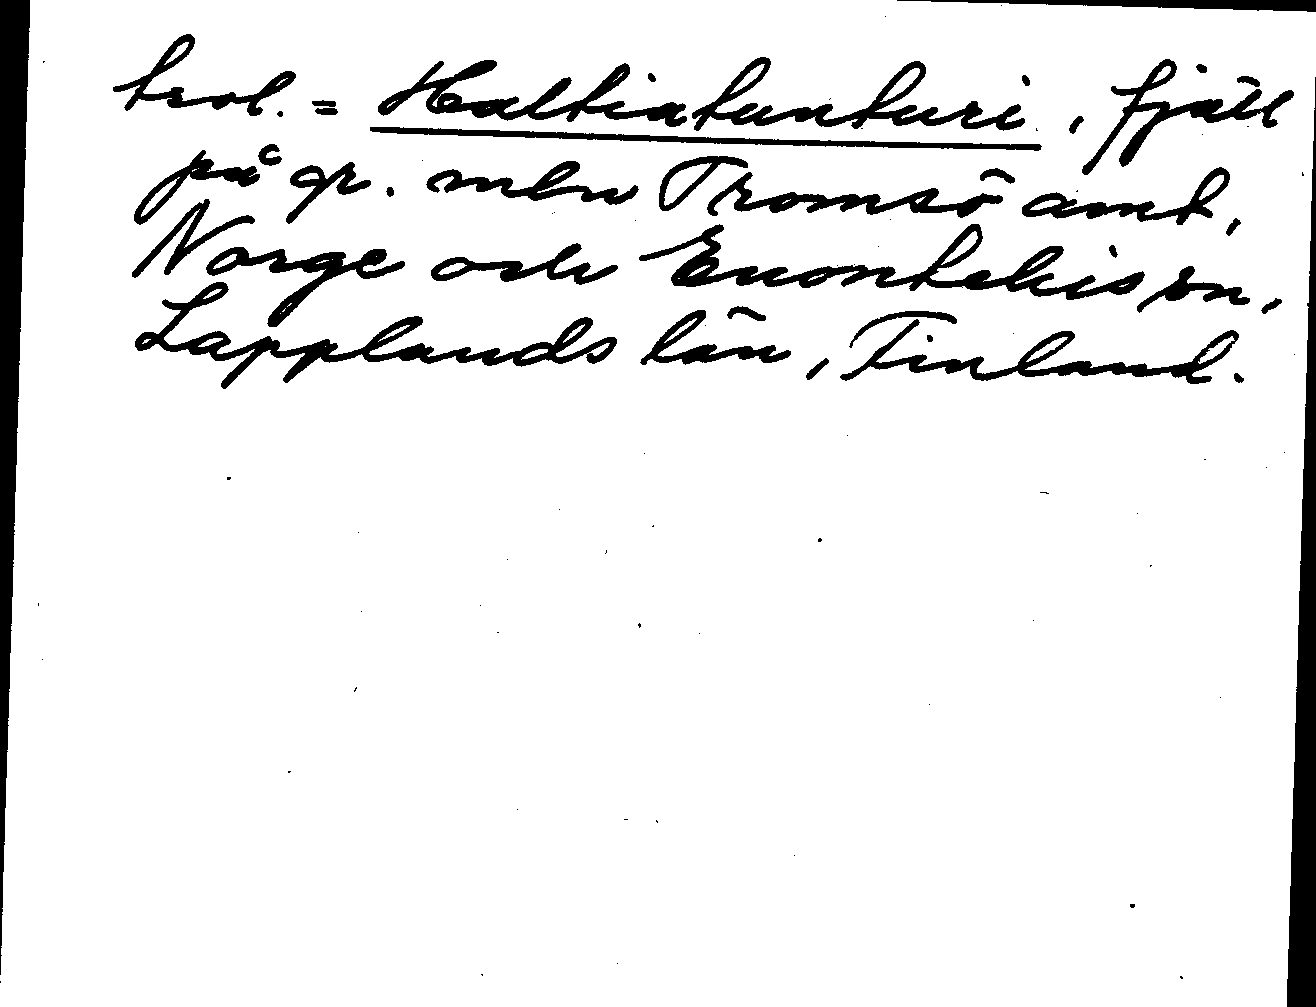 trol. = Haltiatunturi, fjäll
på gr. mln Tromsö amt,
Norge och Enontekis sn,
Lapplands län, Finland.